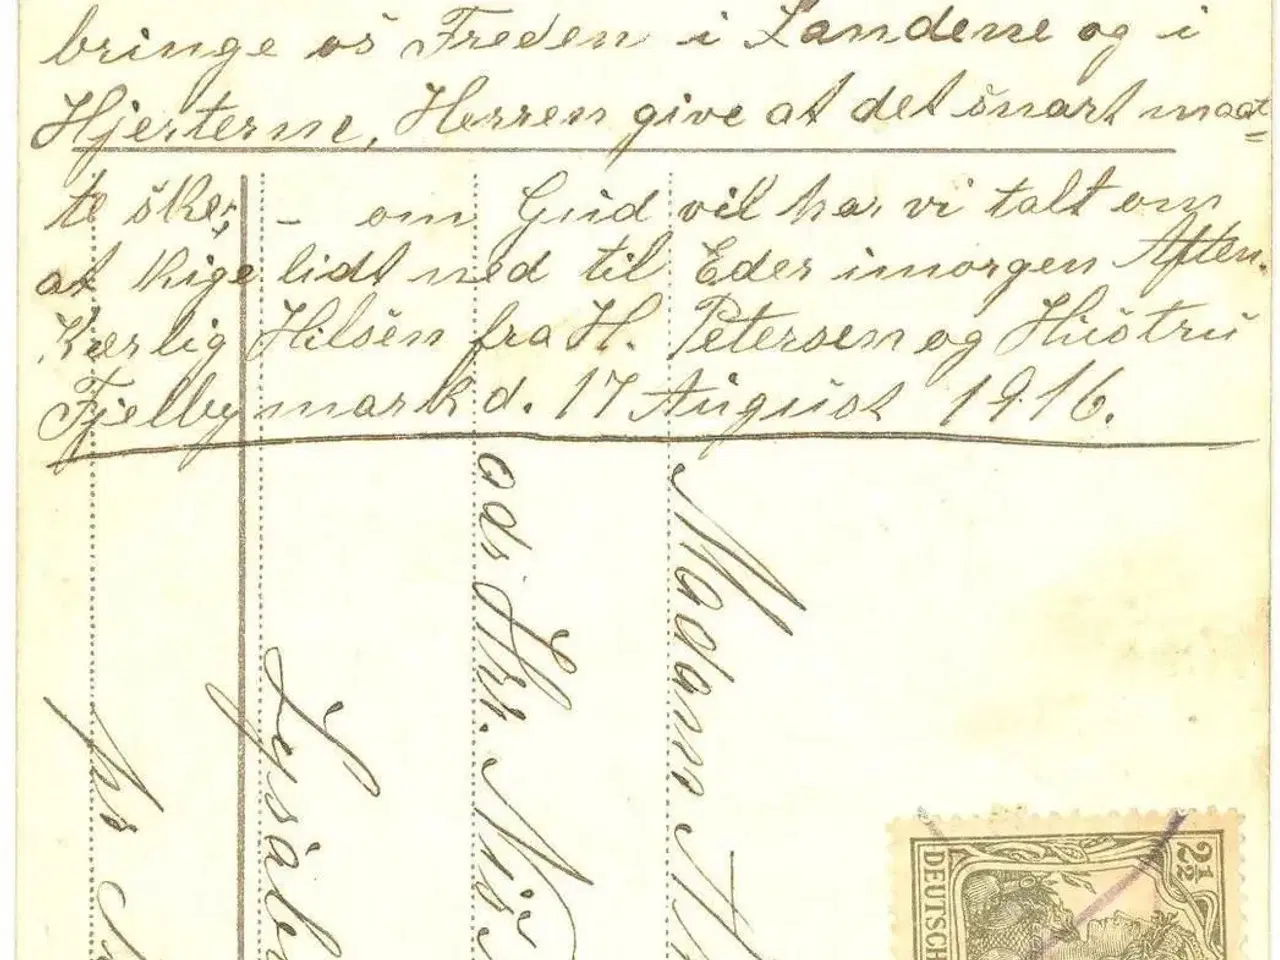 bringe os Freden i Landene og i
Hjerterne, Herren give at det snart maat=
te ske, - om Gud vil har vi talt om
at Kige lidt ned til Eder imorgen Aften.
Kærlig Hilsen fra H. Petersen og Hustru
Fjelbymark d. 17 August 1916.
Madam
ads Hr.
Lysab
pr
2½
DEUTSCH